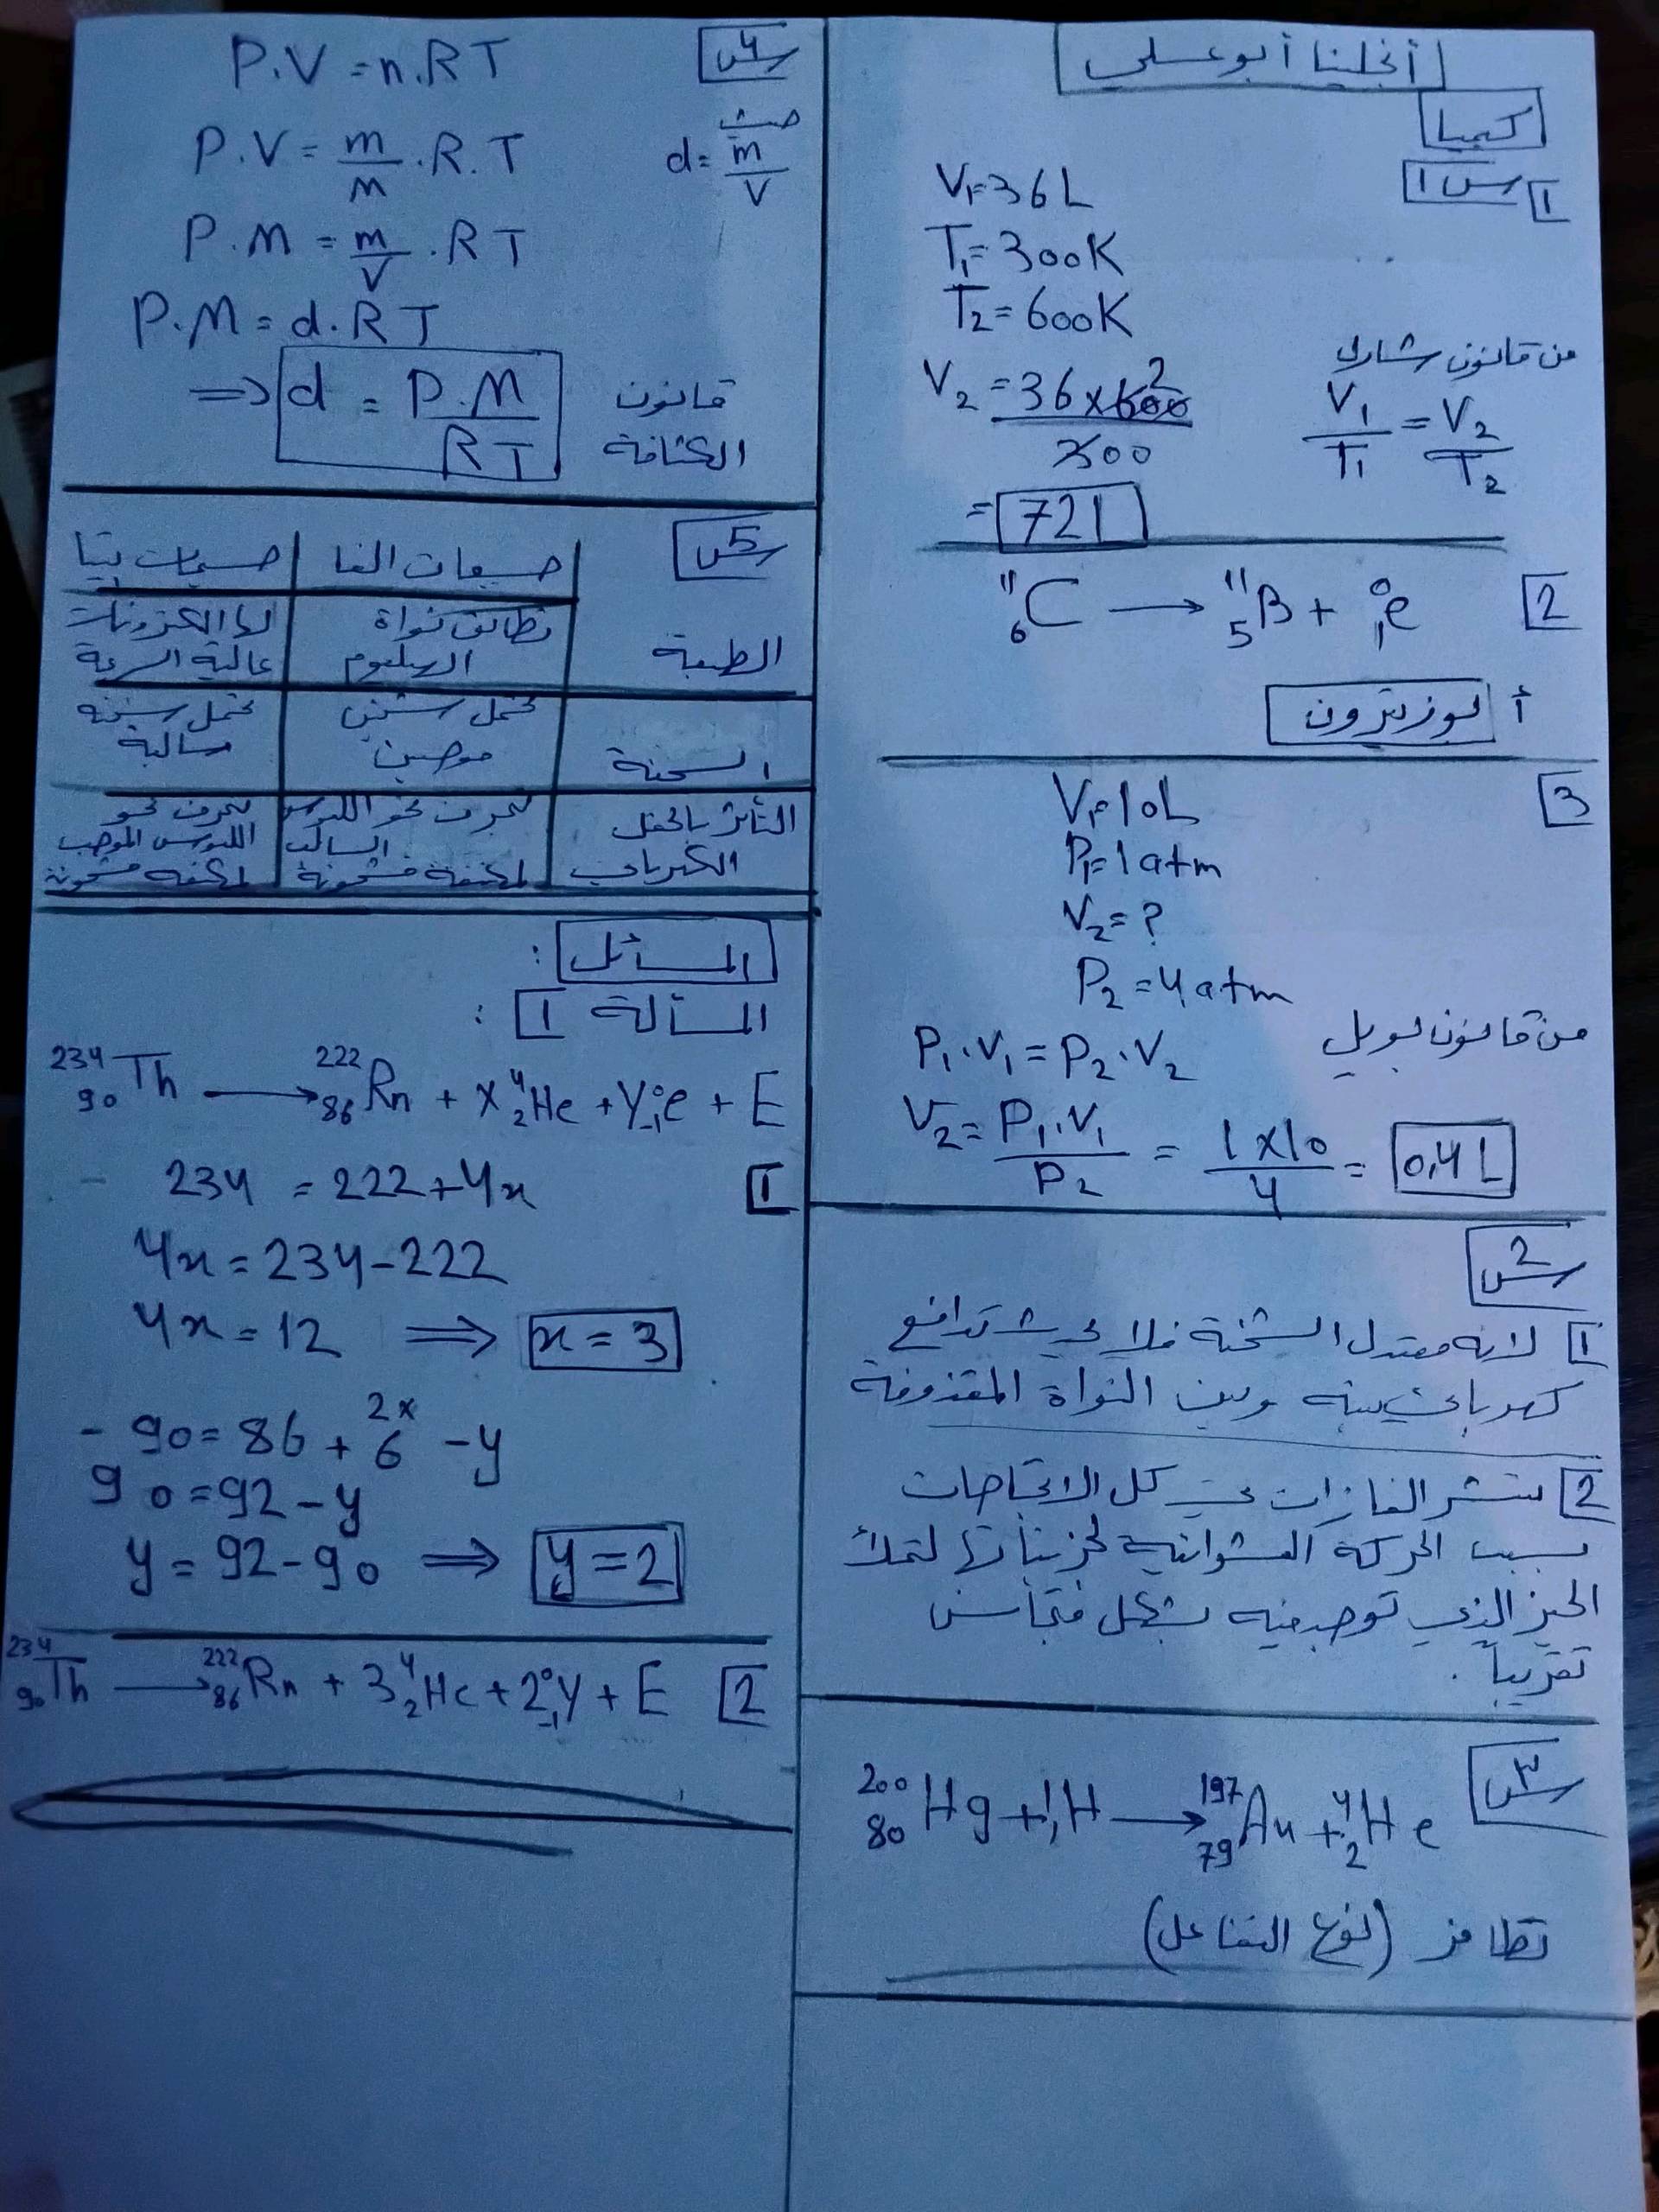 أنجلينا أبو عسلي
كيميا
س1
1
V1=36L
T1=300K
T2=600K
من قانون شارل
V1/T1 = V2/T2
V2 = 36×600/300
2
= 72L
2
¹¹₆C → ¹¹₅B + ⁰₁e
أ بوزيترون
3
V1=10L
P1=1atm
V2=?
P2=4atm
من قانون بويل
P1.V1=P2.V2
V2=P1.V1/P2 = 1×10/4 = 0,4L
س2
1 لانه معتدل الشحنة فلا يحدث تدافع
كهربائي بينه وبين النواة المقذوفة
2 تنتشر الغازات في كل الاتجاهات
بسبب الحركة العشوائية لجزيئاتها لتملأ
الحيز الذي توجد فيه بشكل متجانس
تقريباً .
س٣
²⁰⁰₈₀Hg + ¹₁H → ¹⁹⁷₇₉Au + ⁴₂He
تطافر (نوع التفاعل)
س4
P.V =n.RT
P.V = m/M .R.T
حيث d= m/V
P.M = m/V .RT
P.M = d.RT
⇒ d = P.M/RT
قانون
الكثافة
س5
جسيمات الفا | جسيمات بيتا
الطبيعة | تطابق نواة الهيليوم | لها الكترونات عالية السرعة
الشحنة | تحمل شحنتين موجبتين | تحمل شحنة سالبة
التأثر بالحقل الكهربائي | تنحرف نحو اللبوس السالب لمكثفة مشحونة | تنحرف نحو اللبوس الموجب لمكثفة مشحونة
المسائل :
المسألة 1 :
²³⁴₉₀Th → ²²²₈₆Rn + x⁴₂He + y⁰₋₁e + E
1
234 = 222+4x
4x = 234-222
4x = 12 ⇒ x = 3
2x
- 90 = 86 + 6 - y
90 = 92 - y
y = 92 - 90 ⇒ y = 2
2
²³⁴₉₀Th → ²²²₈₆Rn + 3⁴₂He + 2⁰₋₁y + E